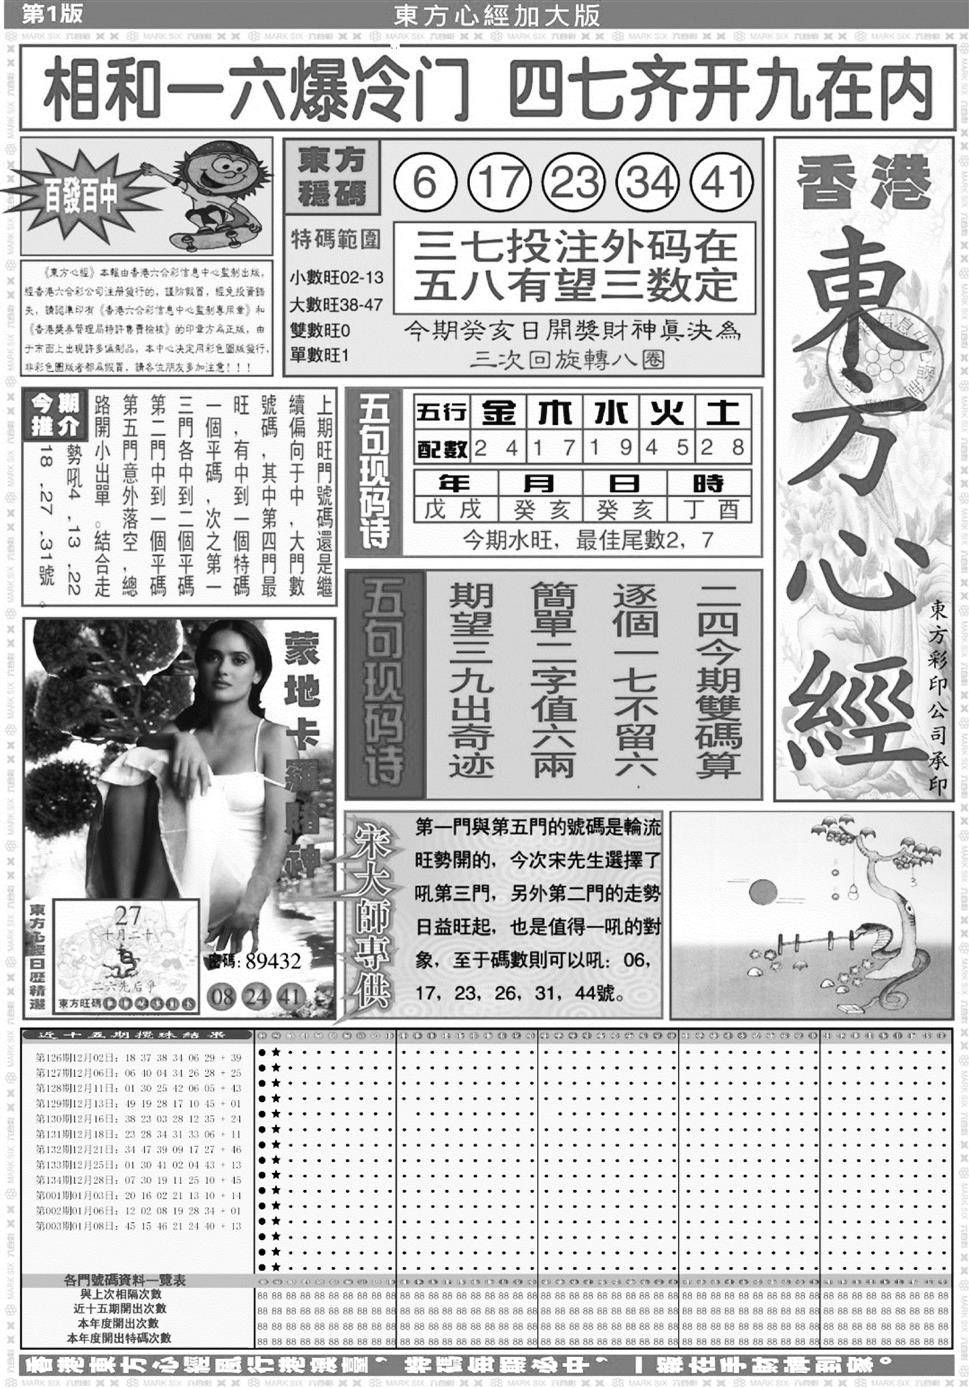 第1版
東方心經加大版
相和一六爆冷门 四七齐开九在内
百發百中
《東方心經》本報由香港六合彩信息中心監制出版，
經香港六合彩公司注册發行的，謹防假冒，經免投資錯
失，請認準印有《香港六合彩信息中心監制專用章》和
《香港獎券管理局特許專賣檢核》的印章方爲正版，由
于市面上出現許多僞制品，本中心决定用彩色圖版發行，
非彩色圖版者都爲假冒，請各位朋友多加注意！！！
東方
穩碼
6 17 23 34 41
特碼範圍
小數旺02-13
大數旺38-47
雙數旺0
單數旺1
三七投注外码在
五八有望三数定
今期癸亥日開獎財神眞決為
三次回旋轉八圈
香港
東方心經
東方彩印公司承印
今期
推介
上期旺門號碼還是繼
續偏向于中，大門數
號碼，其中第四門最
旺，有中到一個特碼
一個平碼，次之第一
三門各中到二個平碼
第二門中到一個平碼
第五門意外落空，總
路開小出單。結合走
勢吼4，13，22
18，27，31號。
五句现码诗
五行 金 木 水 火 土
配數 2 4 1 7 1 9 4 5 2 8
年 月 日 時
戊戌 癸亥 癸亥 丁酉
今期水旺，最佳尾數2，7
五句现码诗
二四今期雙碼算
逐個一七不留六
簡單二字值六兩
期望三九出奇迹
蒙地卡羅賭神
東方心經日歷精選
27
十月二十
二六先后爭
東方旺碼
密碼：89432
08 24 41
宋大師專供
第一門與第五門的號碼是輪流
旺勢開的，今次宋先生選擇了
吼第三門，另外第二門的走勢
日益旺起，也是值得一吼的對
象，至于碼數則可以吼：06，
17，23，26，31，44號。
近十五期攪珠結果
第126期12月02日：18 37 38 34 06 29 + 39
第127期12月06日：06 40 04 34 26 28 + 25
第128期12月11日：01 30 25 42 06 05 + 43
第129期12月13日：49 19 28 17 10 45 + 01
第130期12月16日：38 23 03 28 12 35 + 24
第131期12月18日：23 28 34 31 33 06 + 11
第132期12月21日：34 47 39 09 17 27 + 46
第133期12月25日：01 30 41 02 04 43 + 13
第134期12月28日：07 30 19 11 25 10 + 45
第001期01月03日：20 16 02 21 13 10 + 14
第002期01月06日：12 02 08 19 28 34 + 01
第003期01月08日：45 15 46 21 24 40 + 13
各門號碼資料一覽表
與上次相隔次數
近十五期開出次數
本年度開出次數
本年度開出特碼次數
香港東方心經風行港澳臺，特碼每期必中，一報在手財神到家。